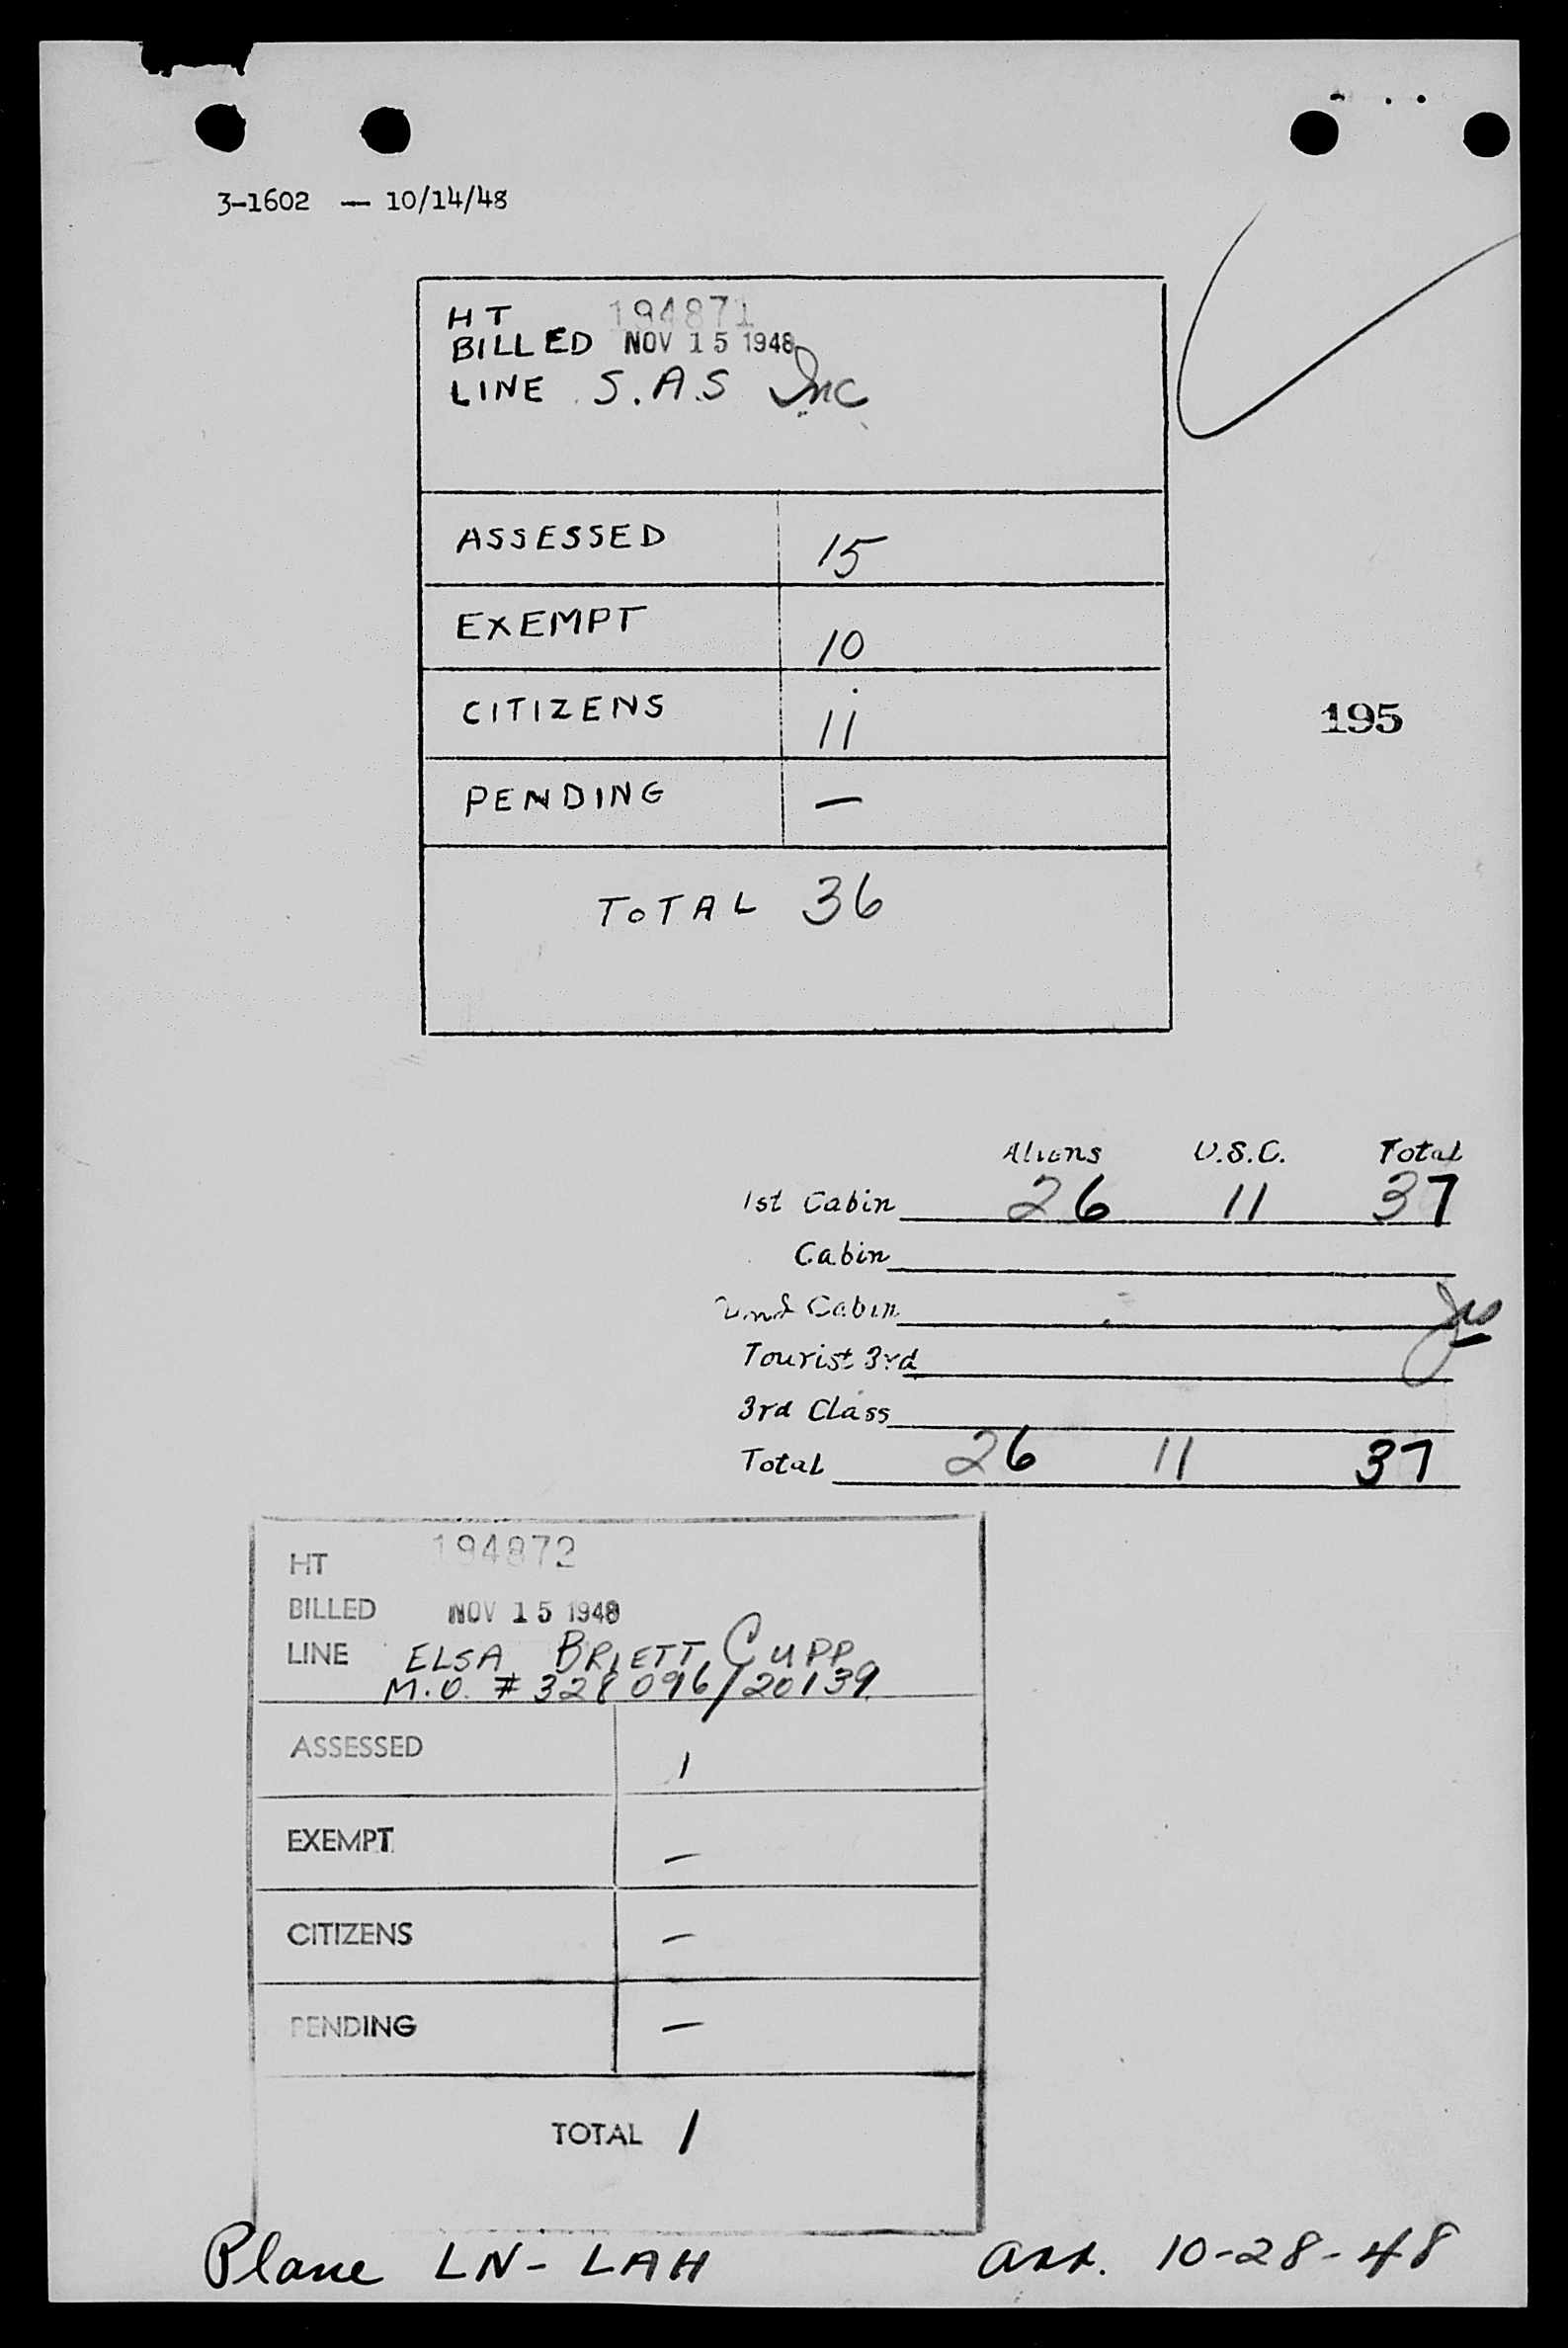 3-1602 — 10/14/48
HT 194871
BILLED NOV 15 1948
LINE S.A.S Inc
ASSESSED 15
EXEMPT 10
CITIZENS 11
195
PENDING —
TOTAL 36
Aliens U.S.C. Total
1st Cabin 26 11 37
Cabin
2nd Cabin
Tourist 3rd
3rd Class
Total 26 11 37
HT 194872
BILLED NOV 15 1948
LINE ELSA BRIETT CUPP
M.O. # 328096/20139
ASSESSED 1
EXEMPT —
CITIZENS —
PENDING —
TOTAL 1
Plane LN-LAH arr. 10-28-48